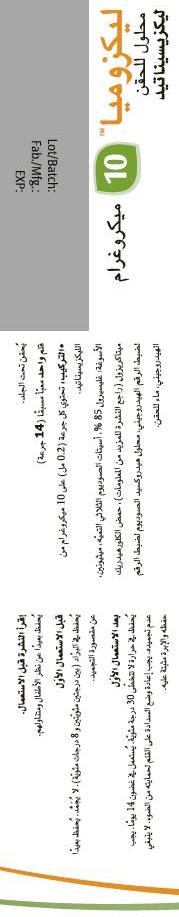 ليكزوميا™
محلول للحقن
ليكزيسيناتيد
10 ميكروغرام
Lot/Batch:
Fab./Mfg.:
EXP:
يُحقن تحت الجلد.
قلم واحد معبأ مسبقًا (14 جرعة)
• التركيب: تحتوي كل جرعة (0.2 مل) على 10 ميكروغرام من
الليكزيسيناتيد.
الأسوغة: غليسيرول 85 %، أسيتات الصوديوم الثلاثي التميّه، ميثيونين،
ميتاكريزول (راجع النشرة للمزيد من المعلومات)، حمض الكلورهيدريك
لضبط الرقم الهيدروجيني، محلول هيدروكسيد الصوديوم لضبط الرقم
الهيدروجيني، ماء للحقن.
إقرأ النشرة قبل الاستعمال.
يُحفظ بعيدًا عن نظر الأطفال ومتناولهم.
قبل الاستعمال الأوّل
يُحفظ في البرّاد (بين درجتين مئويتين و 8 درجات مئوية). لا يُجمّد. يُحفظ بعيدًا
عن مقصورة التجميد.
بعد الاستعمال الأوّل
يُحفظ في حرارة لا تتخطى 30 درجة مئوية. يُستعمل في غضون 14 يومًا. يجب
عدم تجميده. يجب إعادة وضع السدادة على القلم لحمايته من الضوء. لا ينبغي
حفظه والإبرة مثبّتة عليه.